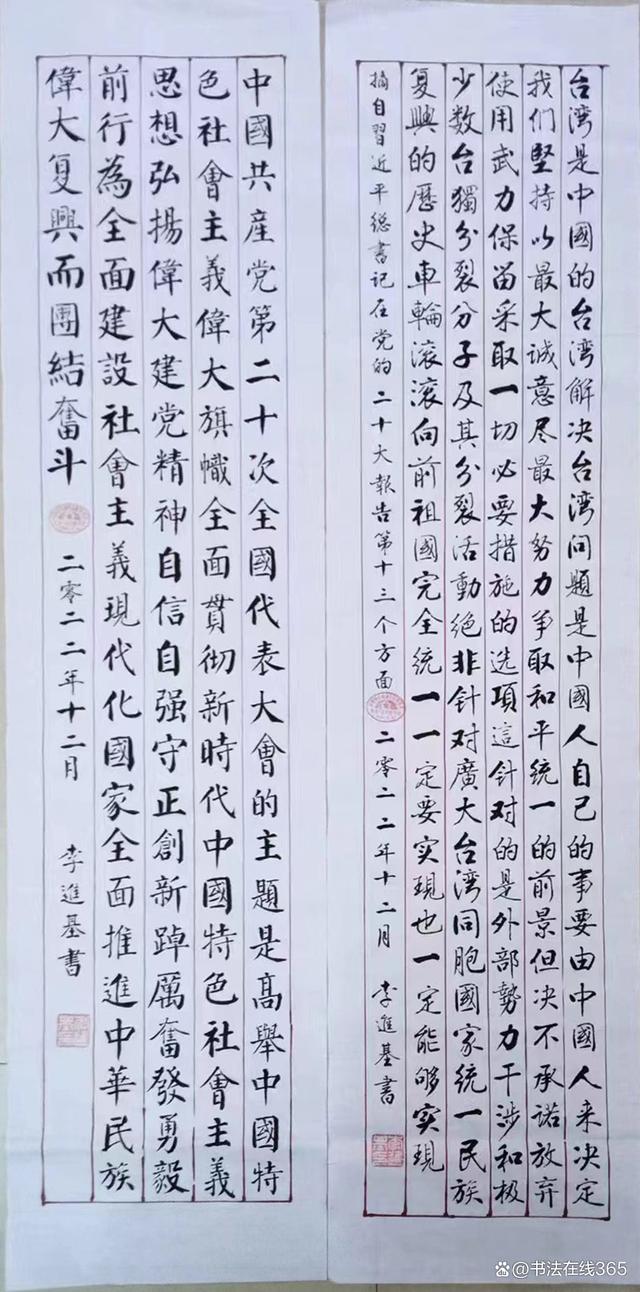 台湾是中國的台湾解决台湾问题是中國人自己的事要由中國人来决定
我们堅持以最大诚意尽最大努力争取和平统一的前景但决不承诺放弃
使用武力保留采取一切必要措施的选項這针对的是外部势力干涉和极
少数台獨分裂分子及其分裂活動绝非针对廣大台湾同胞國家统一民族
复興的歷史車輪滚滚向前祖國完全统一一定要实現也一定能够实現
摘自習近平總書记在党的二十大報告第十三个方面 二零二二年十二月 李進基書
中國共産党第二十次全國代表大會的主題是高舉中國特
色社會主義偉大旗幟全面貫彻新時代中國特色社會主義
思想弘揚偉大建党精神自信自强守正創新踔厲奮發勇毅
前行為全面建設社會主義現代化國家全面推進中華民族
偉大复興而團結奮斗 二零二二年十二月 李進基書
@书法在线365